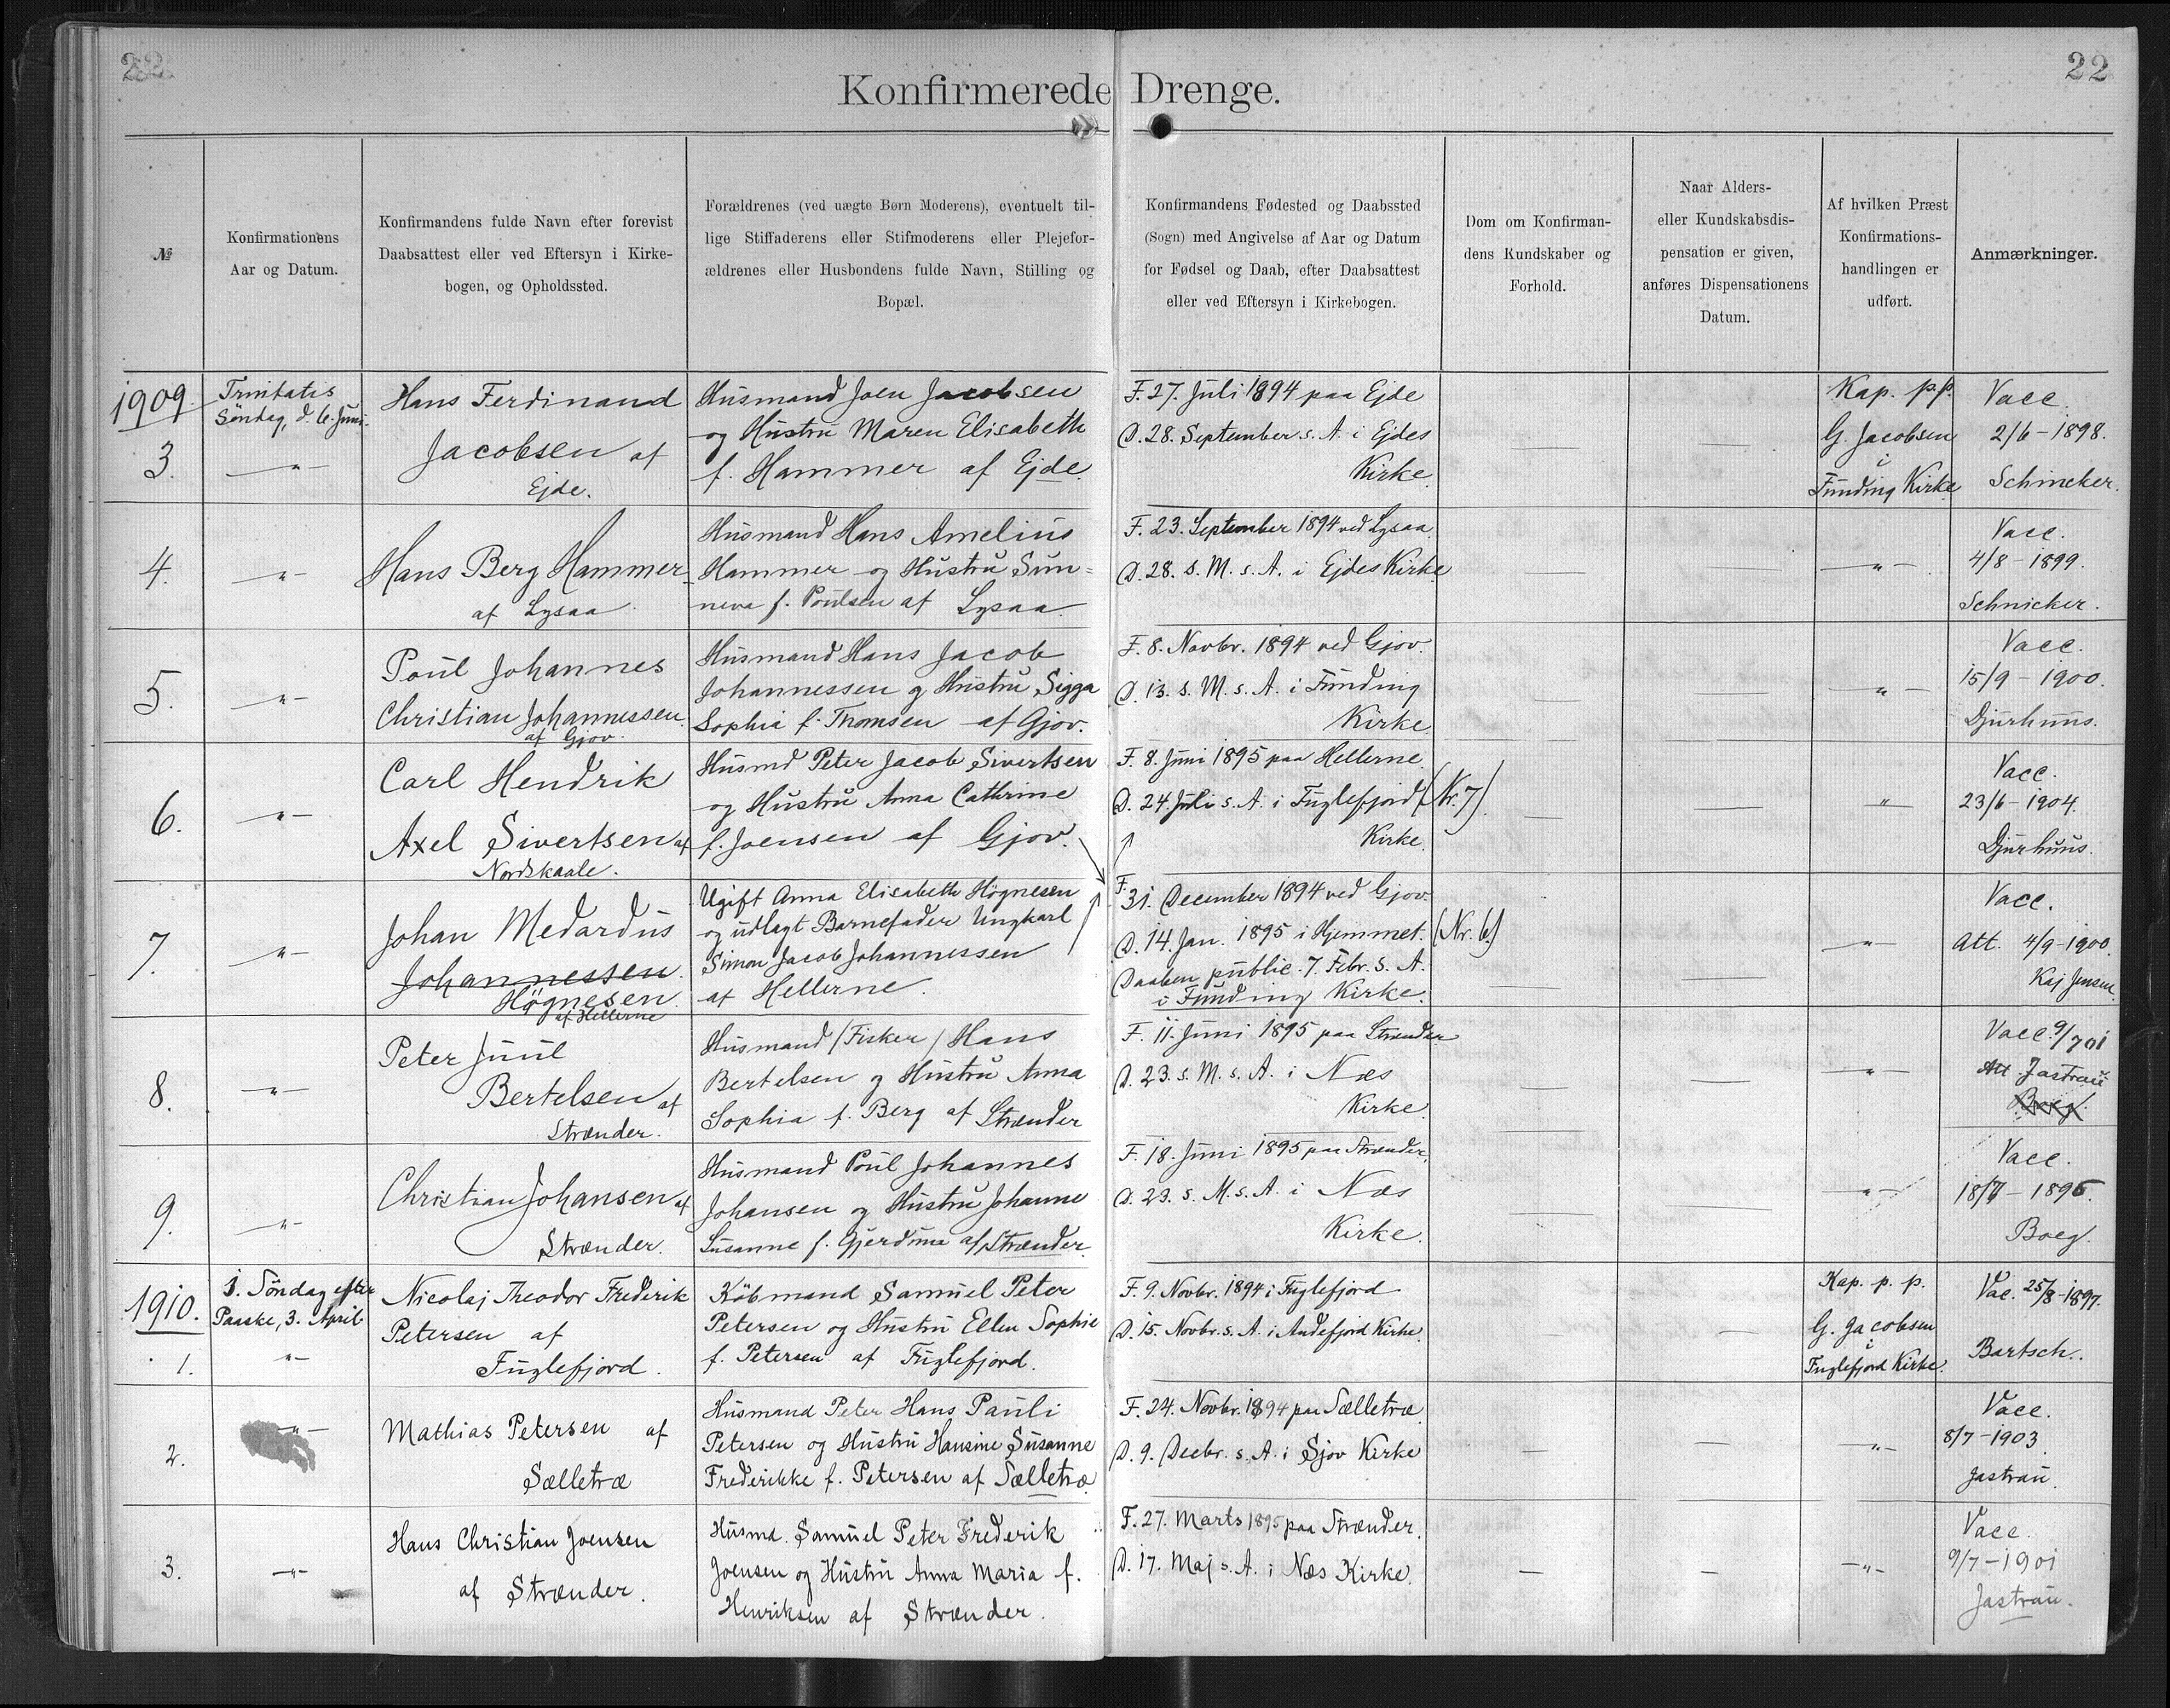 22.
22
Konfirmerede Drenge.
№
Konfirmationens
Aar og Datum.
Konfirmandens fulde Navn efter forevist
Daabsattest eller ved Eftersyn i Kirke-
bogen, og Opholdssted.
Forældrenes (ved uægte Børn Moderens), eventuelt til-
lige Stiffaderens eller Stifmoderens eller Plejefor-
ældrenes eller Husbondens fulde Navn, Stilling og
Bopæl.
Konfirmandens Fødested og Daabssted
(Sogn) med Angivelse af Aar og Datum
for Fødsel og Daab, efter Daabsattest
eller ved Eftersyn i Kirkebogen.
Dom om Konfirman-
dens Kundskaber og
Forhold.
Naar Alders-
eller Kundskabsdis-
pensation er given,
anføres Dispensationens
Datum.
Af hvilken Præst
Konfirmations-
handlingen er
udført.
Anmærkninger.
1909
3.
Trinitatis
Söndag, d. 6. Juni.
-"-
Hans Ferdinand
Jacobsen af
Ejde.
Husmand Joen Jacobsen
og Hustru Maren Elisabeth
f. Hammer af Ejde.
F. 27. Juli 1894 paa Ejde
D. 28. September s. A. i Ejdes
Kirke.
Kap. p.p.
G. Jacobsen
i
Funding Kirke
Vacc.
2/6-1898.
Schneker.
4.
-"-
Hans Berg Hammer
af Lysaa.
Husmand Hans Amelius
Hammer og Hustru Sun=
neva f. Poulsen af Lysaa.
F. 23. September 1894 ved Lysaa.
D. 28. s. M. s. A. i Ejdes Kirke
-"-
Vacc.
4/8-1899.
Schnicker.
5.
-"-
Poul Johannes
Christian Johannessen
af Gjov.
Husmand Hans Jacob
Johannessen og Hustru Sigga
Sophia f. Thomsen af Gjov.
F. 8. Novbr. 1894 ved Gjov.
D. 13. s. M. s. A. i Funding
Kirke.
-"-
Vacc.
15/9-1900.
Djurhuus.
6.
-"-
Carl Hendrik
Axel Sivertsen af
Nordskaale.
Husmd Peter Jacob Sivertsen
og Hustru Anna Cathrine
f. Joensen af Gjov.
F. 8. Juni 1895 paa Hellerne.
D. 24. Juli s. A. i Fuglefjord (Nr. 7).
Kirke.
-"-
Vacc.
23/6-1904.
Djurhuus.
7.
-"-
Johan Medardus
Johannessen
Högnesen
af Hellerne
Ugift Anna Elisabeth Högnesen
og udlagt Barnefader Ungkarl
Simon Jacob Johannessen
af Hellerne.
F. 31. December 1894 ved Gjov.
D. 14. Jan. 1895 i Hjemmet. (Nr. 6)
Daaben public. 7. Febr. s. A.
i Funding Kirke.
-"-
Vacc.
Att. 4/9-1900.
Kaj Jensen.
8.
-"-
Peter Juul
Bertelsen af
Strænder.
Husmand /Fisker/ Hans
Bertelsen og Hustru Anna
Sophia f. Berg af Strænder
F. 11. Juni 1895 paa Strænder
D. 23. s. M. s. A. i Næs
Kirke.
-"-
Vacc. 9/7 01
Att. Jastrau
Boeg.
9.
-"-
Christian Johansen af
Strænder.
Husmand Poul Johannes
Johansen og Hustru Johanne
Susanne f. Gjerdine af Strænder.
F. 18. Juni 1895 paa Strænder.
D. 23. s. M. s. A. i Næs
Kirke.
-"-
Vacc.
18/7-1895.
Boeg.
1910.
1.
1. Söndag efter
Paaske, 3. April.
-"-
Nicolaj Theodor Frederik
Petersen af
Fuglefjord.
Köbmand Samuel Peter
Petersen og Hustru Ellen Sophie
f. Petersen af Fuglefjord.
F. 9. Novbr. 1894 i Fuglefjord
D. 15. Novbr. s. A. i Andefjord Kirke.
Kap. p. p.
G. Jacobsen
i
Fuglefjord Kirke.
Vac. 25/8-1897.
Bartsch.
2.
-"-
Mathias Petersen af
Sælletræ
Husmand Peter Hans Pauli
Petersen og Hustru Hansine Susanne
Frederikke f. Petersen af Sælletræ.
F. 24. Novbr. 1894 paa Sælletræ.
D. 9. Decbr. s. A. i Sjov Kirke
-"-
Vacc.
8/7-1903.
Jastrau.
3.
-"-
Hans Christian Joensen
af Strænder.
Husmd. Samuel Peter Frederik
Joensen og Hustru Anna Maria f.
Henriksen af Strænder.
F. 27. Marts 1895 paa Strænder.
D. 17. Maj s. A. i Næs Kirke.
-"-
Vacc.
9/7-1901
Jastrau.